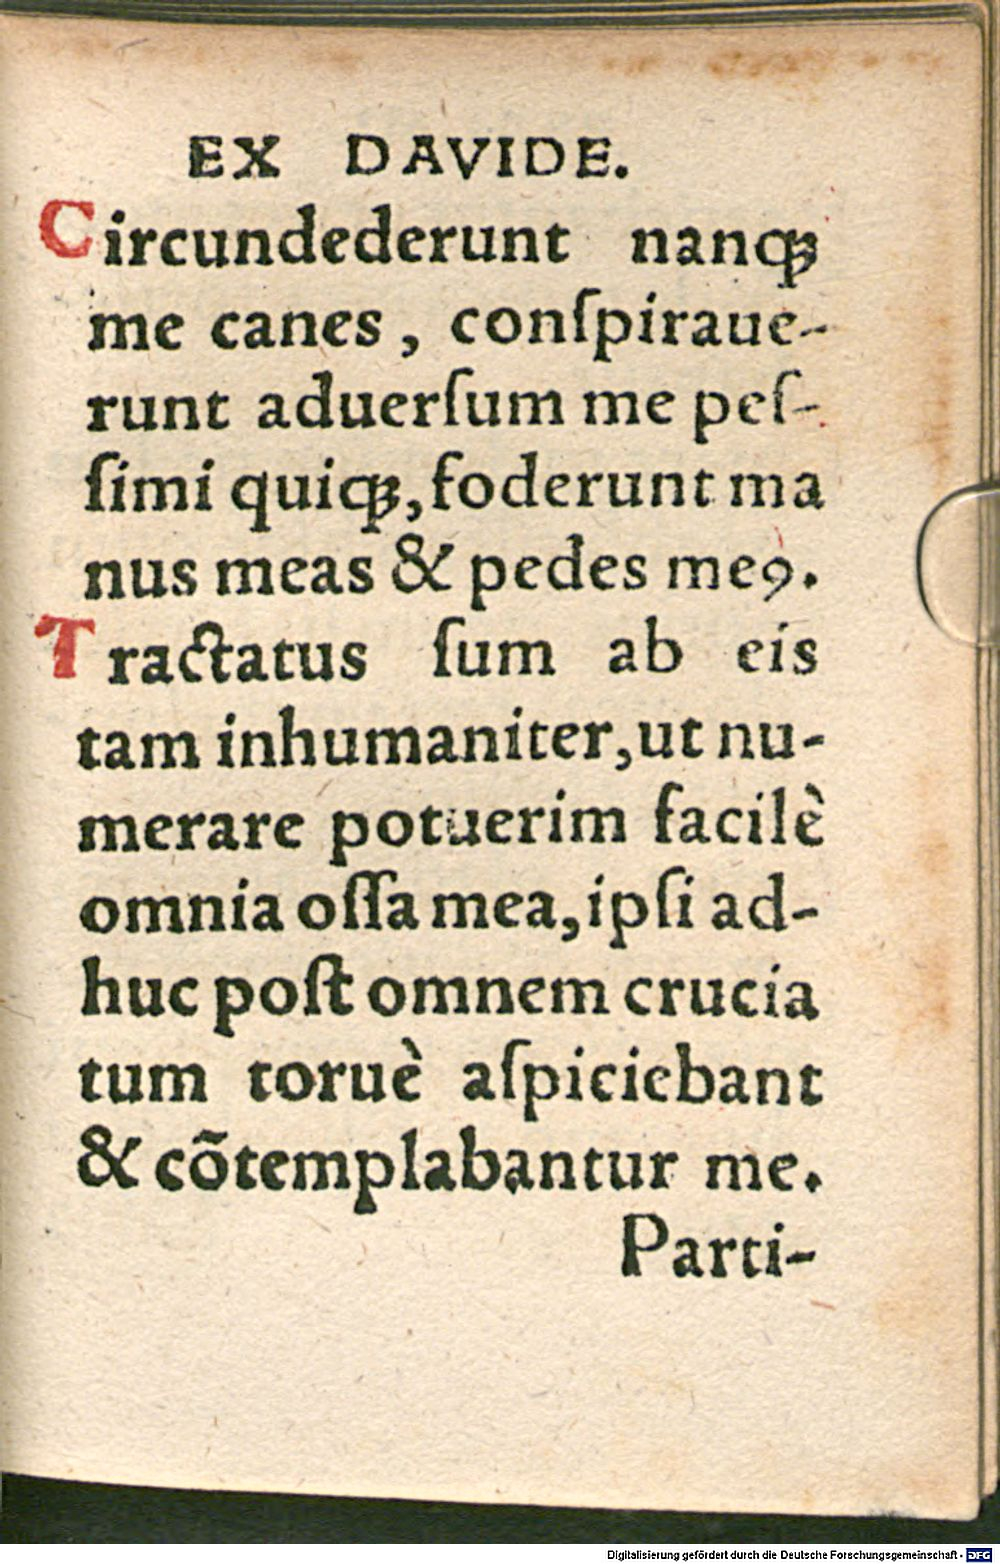 EX DAVIDE.
Circundederunt nanqꝫ
me canes, conſpiraue-
runt aduerſum me peſ-
ſimi quiqꝫ, foderunt ma
nus meas & pedes meꝯ.
Tractatus ſum ab eis
tam inhumaniter, ut nu-
merare potuerim facilè
omnia oſſa mea, ipſi ad-
huc poſt omnem crucia
tum toruè aſpiciebant
& cõtemplabantur me.
Parti-
Digitalisierung gefördert durch die Deutsche Forschungsgemeinschaft - DFG